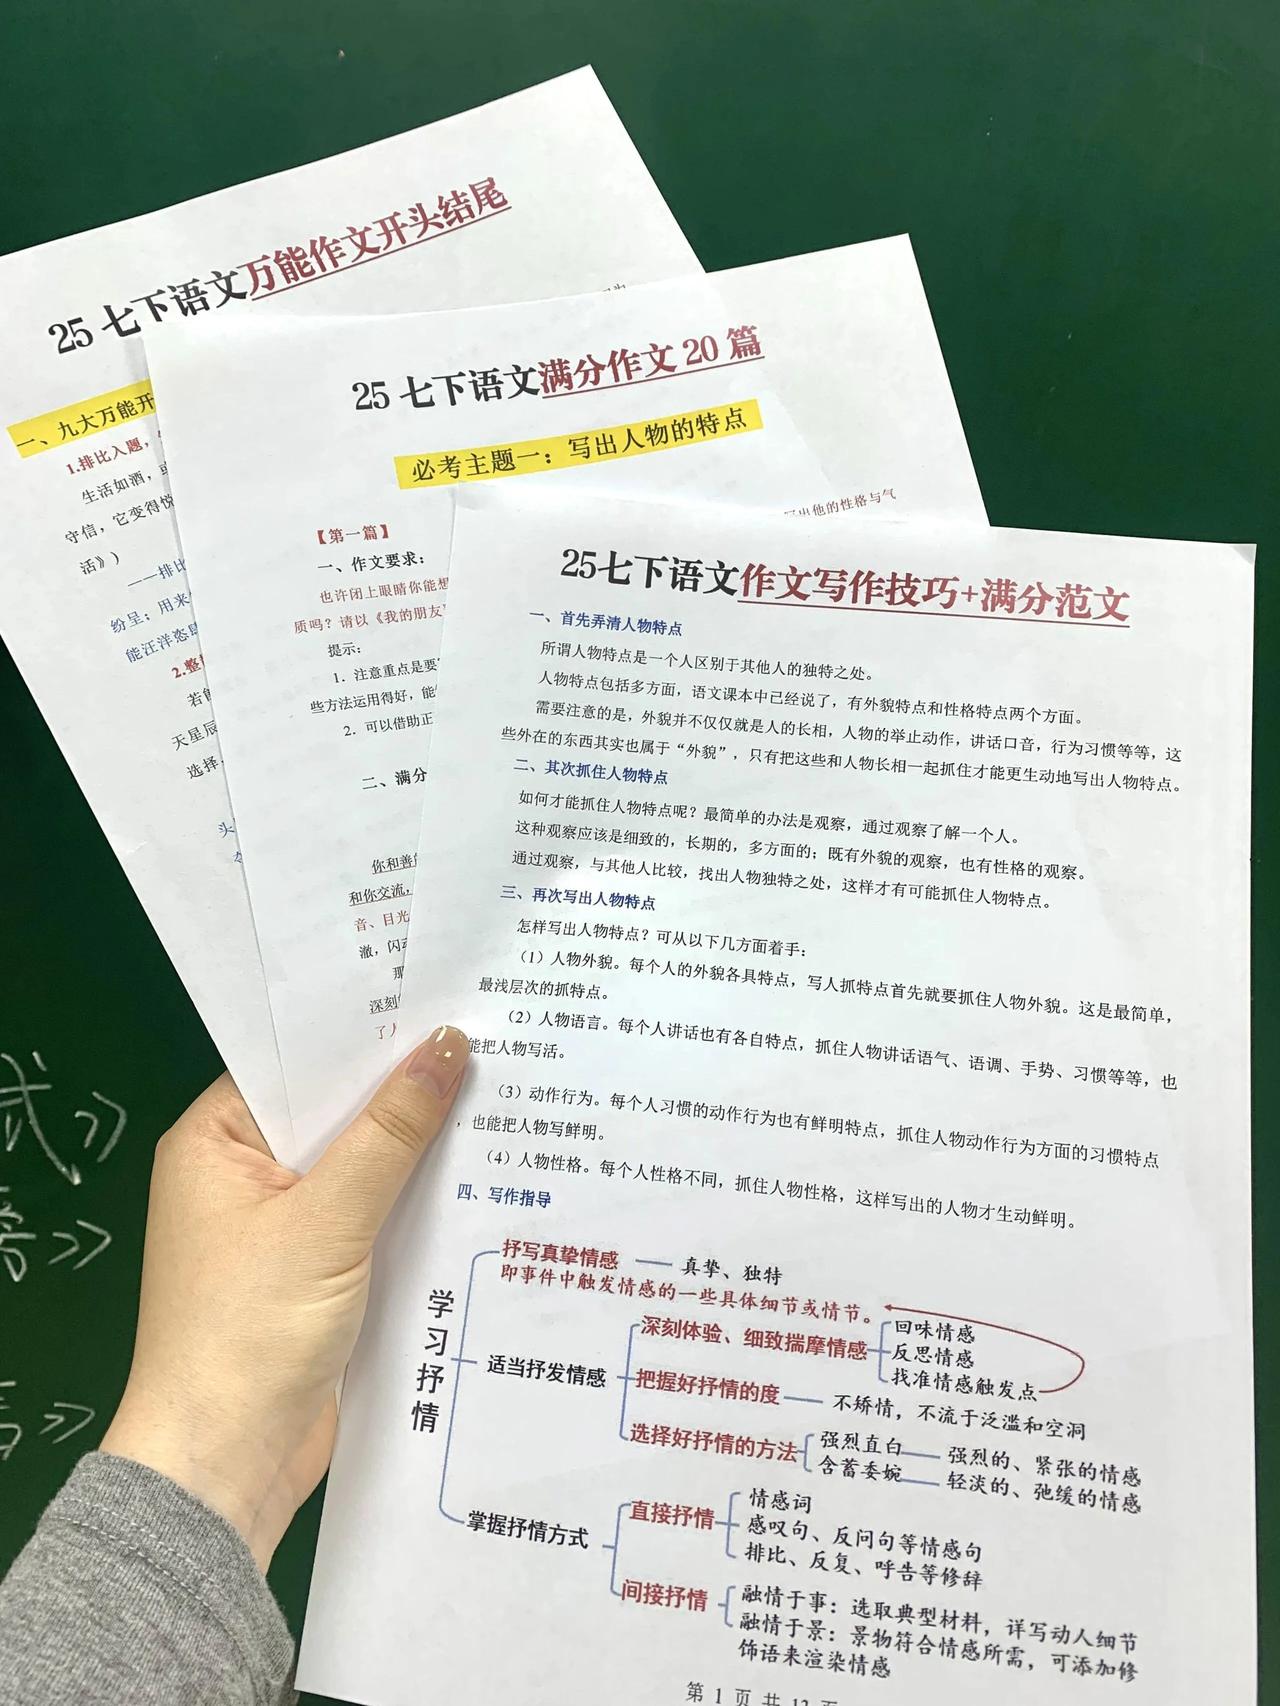 25七下语文万能作文开头结尾
一、九大万能开
1.排比入题，
生活如酒，或
守信，它变得悦
活》）
——排比
纷呈；用来
能汪洋恣肆
2.整
若能
天星辰
选择
头
25七下语文满分作文20篇
必考主题一：写出人物的特点
【第一篇】
一、作文要求：
也许闭上眼睛你能想
写出他的性格与气
质吗？请以《我的朋友
提示：
1．注意重点是要
些方法运用得好，能
2．可以借助正
二、满分
你和善的
和你交流，
音、目光
澈，闪动
那
深刻
了人
25七下语文作文写作技巧+满分范文
一、首先弄清人物特点
所谓人物特点是一个人区别于其他人的独特之处。
人物特点包括多方面，语文课本中已经说了，有外貌特点和性格特点两个方面。
需要注意的是，外貌并不仅仅就是人的长相，人物的举止动作，讲话口音，行为习惯等等，这
些外在的东西其实也属于“外貌”，只有把这些和人物长相一起抓住才能更生动地写出人物特点。
二、其次抓住人物特点
如何才能抓住人物特点呢？最简单的办法是观察，通过观察了解一个人。
这种观察应该是细致的，长期的，多方面的；既有外貌的观察，也有性格的观察。
通过观察，与其他人比较，找出人物独特之处，这样才有可能抓住人物特点。
三、再次写出人物特点
怎样写出人物特点？可从以下几方面着手：
（1）人物外貌。每个人的外貌各具特点，写人抓特点首先就要抓住人物外貌。这是最简单，
最浅层次的抓特点。
（2）人物语言。每个人讲话也有各自特点，抓住人物讲话语气、语调、手势、习惯等等，也
能把人物写活。
（3）动作行为。每个人习惯的动作行为也有鲜明特点，抓住人物动作行为方面的习惯特点
，也能把人物写鲜明。
（4）人物性格。每个人性格不同，抓住人物性格，这样写出的人物才生动鲜明。
四、写作指导
学习抒情
抒写真挚情感 真挚、独特
即事件中触发情感的一些具体细节或情节。
适当抒发情感
深刻体验、细致揣摩情感
回味情感
反思情感
找准情感触发点
把握好抒情的度 不矫情，不流于泛滥和空洞
选择好抒情的方法
强烈直白 强烈的、紧张的情感
含蓄委婉 轻淡的、弛缓的情感
掌握抒情方式
直接抒情
情感词
感叹句、反问句等情感句
排比、反复、呼告等修辞
间接抒情
融情于事：选取典型材料，详写动人细节
融情于景：景物符合情感所需，可添加修
饰语来渲染情感
第 1 页 共 12 页
式》
》
》